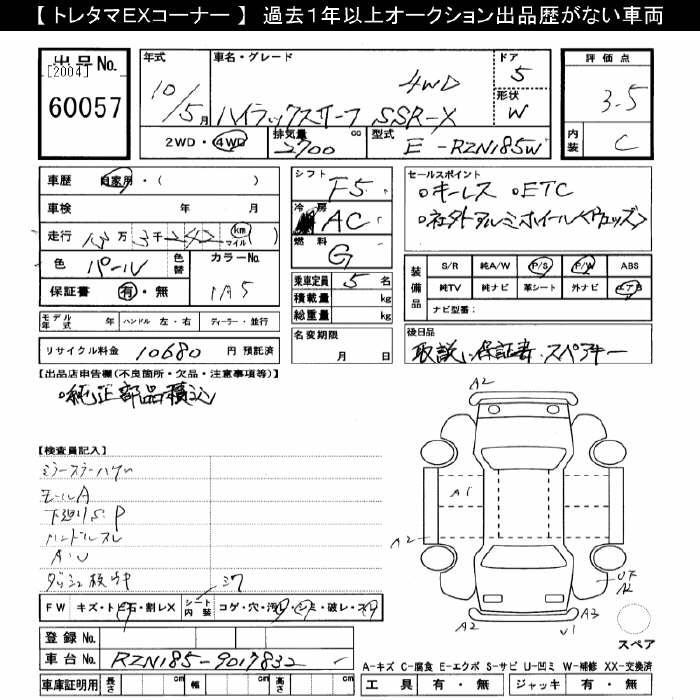 【 トレタマEXコーナー 】 過去1年以上オークション出品歴がない車両
出品No.
[2004]
60057
年式
10/5月
車名・グレード
4WD
ハイラックスサーフ SSR-X
ドア
5
形状
W
評価点
3.5
内装
C
2WD・4WD
排気量 2700 cc
型式
E-RZN185W
車歴 自家用・( )
車検 年 月
走行 13万3千242 km マイル ( )
色 パール 色替 カラーNo.
保証書 有・無 1A5
モデル年式 年 ハンドル 左・右 ディーラー・並行
リサイクル料金 10680 円 預託済
シフト F5
冷房 AC
燃料 G
乗車定員 5 名
積載量 kg
総重量 kg
名変期限
月 日
セールスポイント
○キーレス ○ETC
○社外アルミホイール<ウェッズ>
装備品
S/R 純A/W P/S P/W ABS
純TV 純ナビ 革シート 外ナビ
ナビ型番:
後日品
取説、保証書、スペアキー
【出品店申告欄(不良箇所・欠品・注意事項等)】
○純正部品積込
【検査員記入】
モールA
下廻りS.P
ハンドルスレ
FW キズ・トビ石・割レX シート内装 コゲ・穴・汚レ・シミ・破レ・スレ
登録 No.
車台 No. RZN185-9017832
車庫証明用 長さ cm 幅 cm 高さ cm
A2
A1
A2
A2
A3
スペア
A-キズ C-腐食 E-エクボ S-サビ U-凹ミ W-補修 XX-交換済
工具 有・無 ジャッキ 有・無